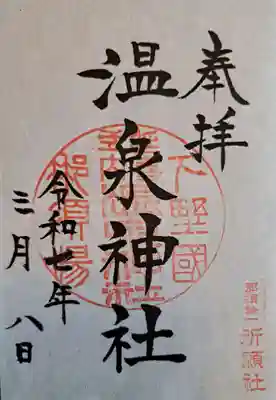 奉拝
温泉神社
令和七年
三月八日
下野國
那須湯
祈願社